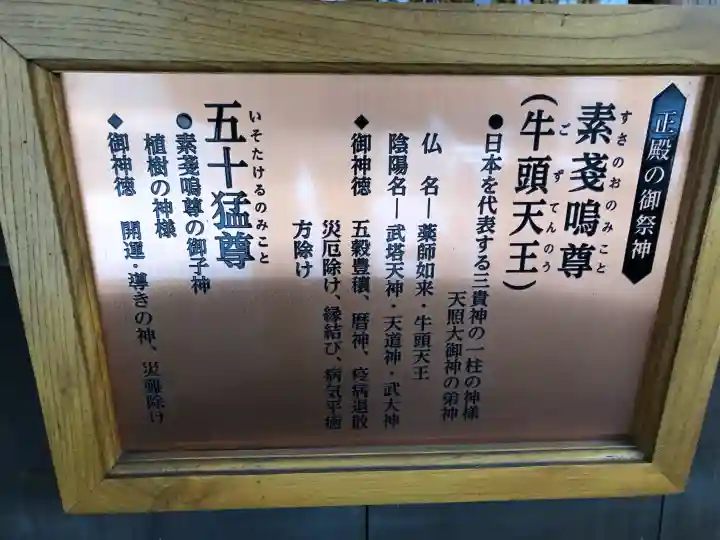 正殿の御祭神
素戔嗚尊
すさのおのみこと
(牛頭天王)
ごずてんのう
●日本を代表する三貴神の一柱の神様
天照大御神の弟神
仏 名―薬師如来・牛頭天王
陰陽名―武塔天神・天道神・武大神
◆御神徳 五穀豊穣、暦神、疫病退散
災厄除け、縁結び、病気平癒
方除け
五十猛尊
いそたけるのみこと
●素戔嗚尊の御子神
植樹の神様
◆御神徳 開運・導きの神、災難除け